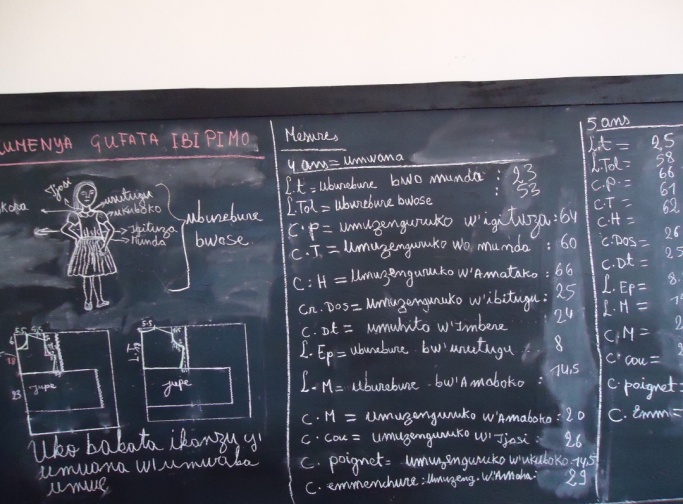 UMENYA GUFATA IBIPIMO
Ijosi
umutugu
umukuboko
Igituza
munda
uburebure
bwose
5.5 5.5
5.5
23
jupe
jupe
Uko bakata ikanzu y'
umwana w'umwaka
umwe
Mesures
4 ans = umwana
L.t = uburebure bwo munda : 23
L.Tol = uburebure bwose : 53
C.p = umuzenguruko w'igituza : 64
C.T = Umuzenguruko wo munda : 60
C.H = umuzenguruko w'Amatako : 66
Cr.Dos = umuzenguruko w'ibitugu : 25
C.Dt = umuhito w'Imbere 24
L.Ep = uburebure bw'urutugu : 8
L.M = uburebure bw'Amaboko : 14,5
C.M = umuzenguruko w'Amaboko : 20
C.cou = umuzenguruko w'Ijosi : 26
C.poignet = umuzenguruko w'ukuboko 14,5
C.emmenchure : Umuzeng. w'Amaha : 29
5 ans
L.t = 25
L.Tol = 58
C.p = 66
C.T = 61
C.H = 62
C.Dos = 26
C.Dt = 25
L.Ep = 8
L.M =
C.M =
C.cou =
C.poignet =
C.Emm =